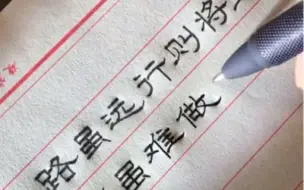 路虽远行则将
虽难做